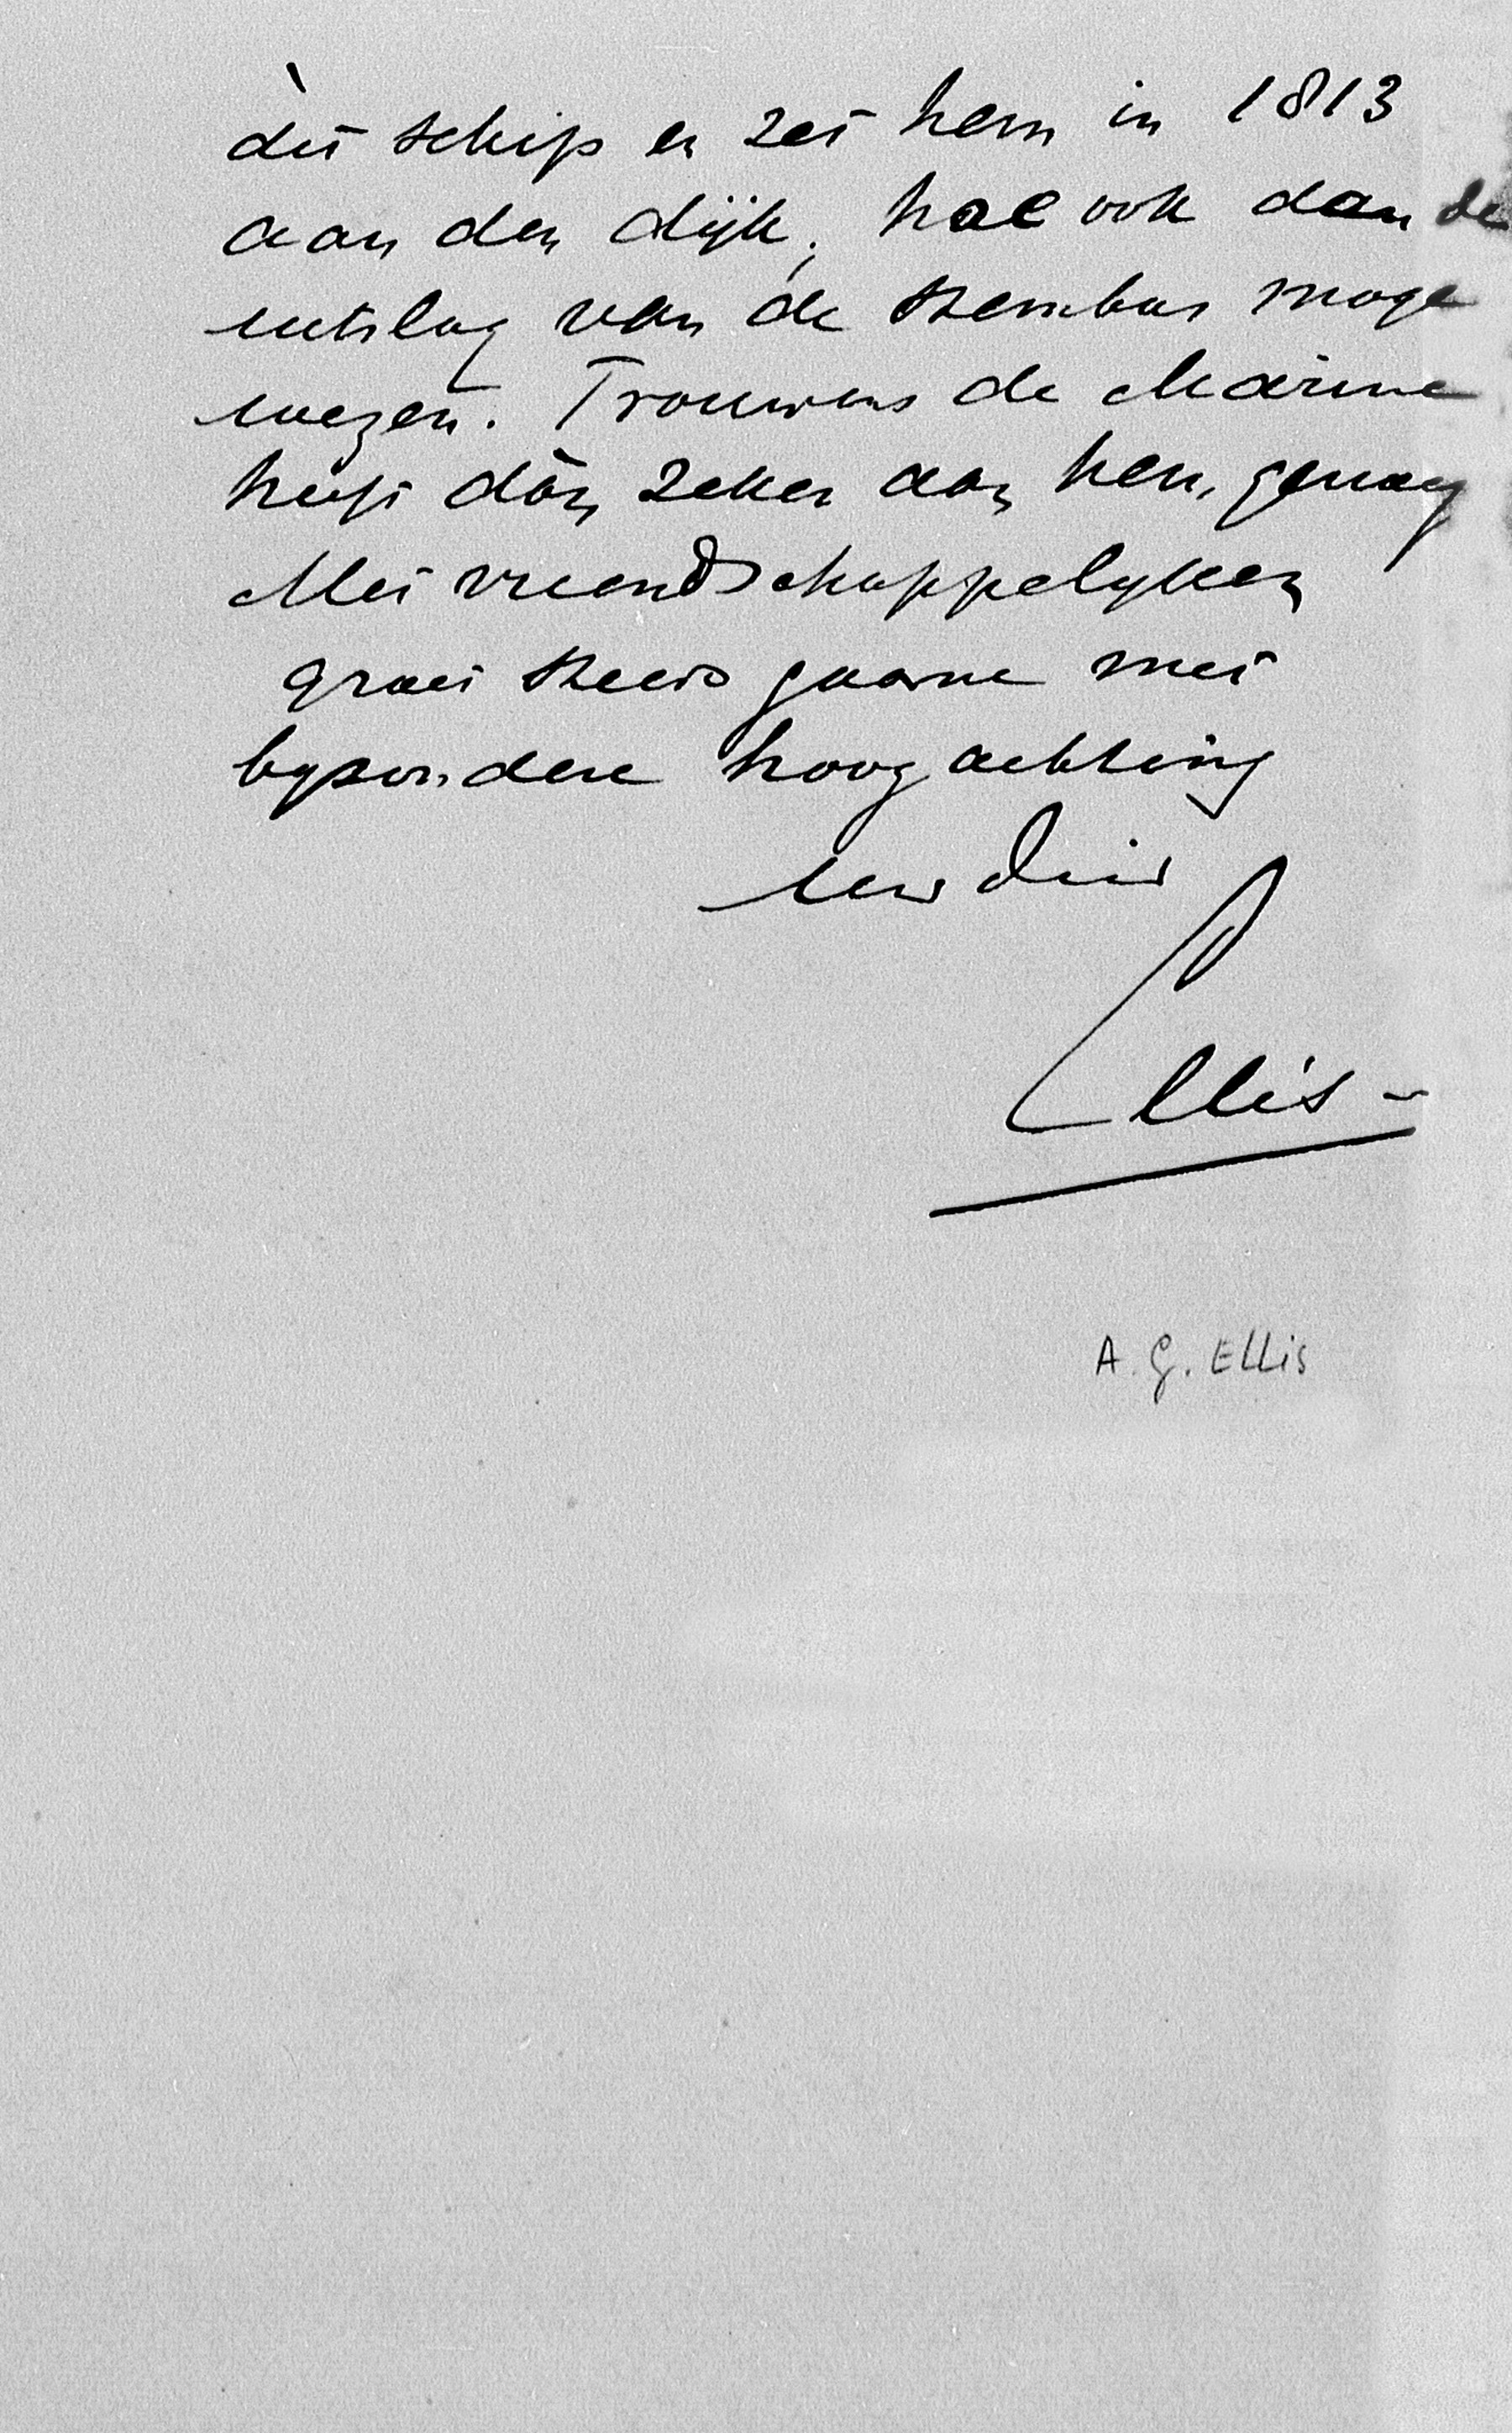 dit schip en zet hem in 1813
aan den dijk, hoe ook dan de
uitslag van de stembus moge
wezen. Trouwens de Marine
heeft dán zeker aan hem genoeg
Met vriendschappelyken
groet steeds gaarne met
byzondere hoogachting
uw dw
Ellis
A. G. Ellis